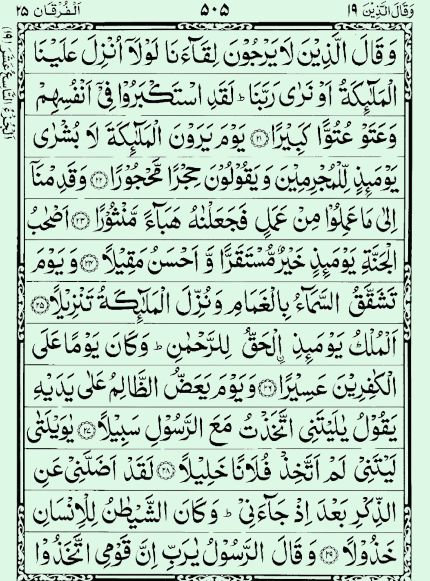 وَقَالَ الَّذِيْنَ ١٩ ٥٠٥ اَلْفُرْقَان ٢٥
وَقَالَ الَّذِيْنَ لَا يَرْجُوْنَ لِقَآءَنَا لَوْلَاۤ اُنْزِلَ عَلَيْنَا
الْمَلٰٓئِكَةُ اَوْ نَرٰى رَبَّنَا ؕ لَقَدِ اسْتَكْبَرُوْا فِيْۤ اَنْفُسِهِمْ
وَعَتَوْ عُتُوًّا كَبِيْرًا ﴿٢١﴾ يَوْمَ يَرَوْنَ الْمَلٰٓئِكَةَ لَا بُشْرٰى
يَوْمَئِذٍ لِّلْمُجْرِمِيْنَ وَيَقُوْلُوْنَ حِجْرًا مَّحْجُوْرًا ﴿٢٢﴾ وَقَدِمْنَاۤ
اِلٰى مَا عَمِلُوْا مِنْ عَمَلٍ فَجَعَلْنٰهُ هَبَآءً مَّنْثُوْرًا ﴿٢٣﴾ اَصْحٰبُ
الْجَنَّةِ يَوْمَئِذٍ خَيْرٌ مُّسْتَقَرًّا وَّ اَحْسَنُ مَقِيْلًا ﴿٢٤﴾ وَيَوْمَ
تَشَقَّقُ السَّمَآءُ بِالْغَمَامِ وَنُزِّلَ الْمَلٰٓئِكَةُ تَنْزِيْلًا ﴿٢٥﴾
اَلْمُلْكُ يَوْمَئِذِ ِۨالْحَقُّ لِلرَّحْمٰنِ ؕ وَكَانَ يَوْمًا عَلَى
الْكٰفِرِيْنَ عَسِيْرًا ﴿٢٦﴾ وَيَوْمَ يَعَضُّ الظَّالِمُ عَلٰى يَدَيْهِ
يَقُوْلُ يٰلَيْتَنِى اتَّخَذْتُ مَعَ الرَّسُوْلِ سَبِيْلًا ﴿٢٧﴾ يٰوَيْلَتٰى
لَيْتَنِيْ لَمْ اَتَّخِذْ فُلَانًا خَلِيْلًا ﴿٢٨﴾ لَقَدْ اَضَلَّنِيْ عَنِ
الذِّكْرِ بَعْدَ اِذْ جَآءَنِيْ ؕ وَكَانَ الشَّيْطٰنُ لِلْاِنْسَانِ
خَذُوْلًا ﴿٢٩﴾ وَقَالَ الرَّسُوْلُ يٰرَبِّ اِنَّ قَوْمِى اتَّخَذُوْا